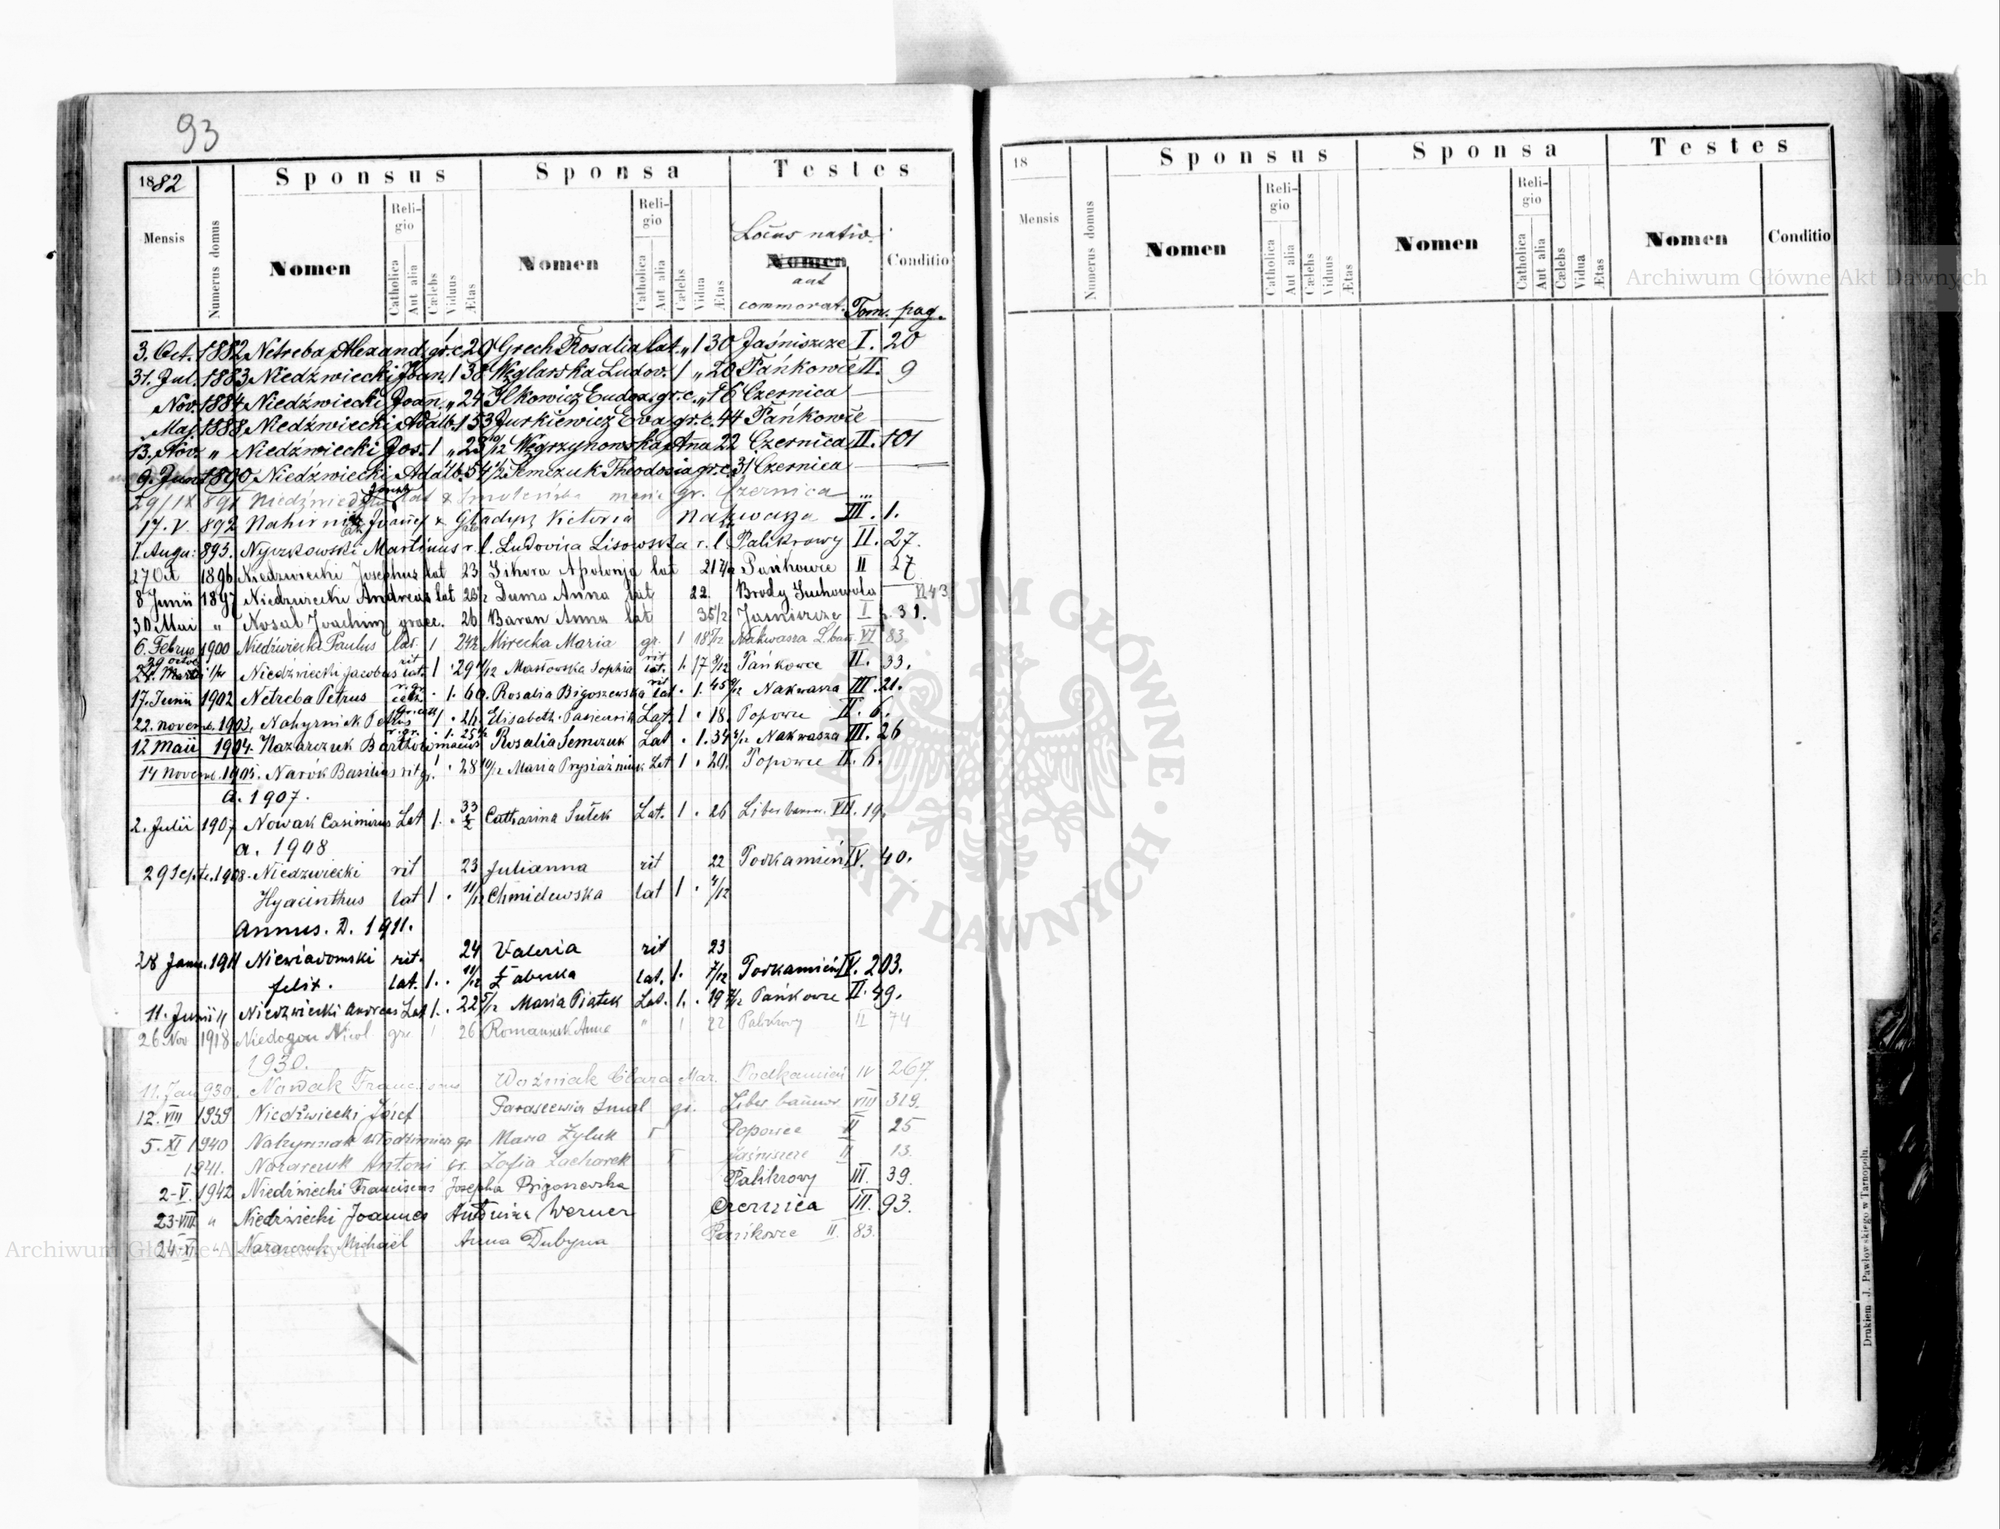 93
1882 Sponsus Sponsa Testes
Mensis Numerus domus Nomen Religio Catholica Aut alia Cælebs Viduus Ætas Nomen Religio Catholica Aut alia Cælebs Vidua Ætas Locus nativ. Nomen aut commorat. Conditio Tom. pag.
3. Oct. 1882 Netreba Alexand. gr. c. 20 Grech Rosalia lat. „ 1 30 Jaśniszcze I. 20
31. Jul. 1883 Niedźwiecki 1 38 Węglarska Ludov. 1 „ 20 Pańkowce II. 9
Nov. 1884 Niedźwiecki Joan. „ 24 Ilkowicz Eudox. gr. c. „ 16 Czernica
„ Maj 1888 Niedźwiecki Adalb. 1 53 Jurkiewicz Eva gr. c. 44 Pańkowce
13. Nov. „ Niedźwiecki Jos. 1 „ 23 Węgrzynowska Anna 22 Czernica II. 101
9. Jun. 1890 Niedźwiecki Adalb. 54 1/2 Semczuk Theodosia gr. c. 31 Czernica
29/IX 891 Niedźwiedzki lat Smoleńska maria gr. Czernica
17. V. 892 Nahirniak Gładysz Victoria Nakwasza III. 1.
1. Augu: 893. Nyczkowski Martinus r. l. Ludovica Lisowska r. l. Palikrowy II. 27.
27 Oct 1896 Niedzwiecki Josephus lat 23 Sikora Apolonja lat 21 Pańkowce II 27
8 Junii 1897 Niedzwiecki Andreas lat 23 Duma Anna lat 22. Brody Suchowola
30 Mai „ Nosal Joachim graec. 26 Baran Anna lat 35/2 Jaśniszcze I p. 31.
6. Februa 1900 Niedźwiecki Paulus lat. 1 24 Mirecka Maria gr. 1 18 Nakwasza L. ban. VI 83.
Niedźwiecki Jacobus rit lat. 1 29 Masłowska Sophia rit lat. 1. 17 Pańkowce II. 33.
17. Junii 1902 Netreba Petrus 1. 60. Rosalia Bigoszewska rit lat. 1. 45 Nakwasza III. 21.
22. novem. 1903. Nahyrniek Petrus 1. 24. Elisabeth Lat. 1. 18. Popowce II. 6.
12 Maii 1904. Nazarczuk Bartholomaeus r. gr. 1. 25 Rosalia Semczuk Lat 1. 34 Nakwasza III. 26
14 Novem. Narók Basilius rit gr. 1. 28 Maria Prysiażniuk Lat 1. 20. Popowce II. 6.
a. 1907.
2. Julii 1907 Nowak Casimirus Lat 1. 33 Catharina Sułek Lat. 1. 26 Liber bann. VII. 19.
a. 1908
29 Septe. 1908. Niedzwiecki rit 23 Julianna rit 22 Podkamień IV. 40.
Hyacinthus lat 1. 11/12 Chmielewska lat 1. /12
Annus. D. 1911.
28 Janu. 1911 Niewiadomski rit. 24 Valeria rit 23
felix. lat. 1. 11/12 lat. 1. 7/12 Podkamień IV. 203.
11. Junii 11 Niedzwiecki Andreas Lat 1. 22 5/12 Maria Piątek Lat. 1. 19 Pańkowce II. 49.
26. Nov 1918 Niedogon Nicol. gr 1 26 Romaniuk Anna „ 1 22 Palikrowy II 74
1930.
11. Jan 930. Nowak Franciscus Woźniak Clara Mar. Podkamień IV 267.
12. VIII 1939 Niedźwiecki Józef Parascewia gr. Liber bannor VIII 319.
5. XI 1940 Nahyrniak Włodzimierz gr Maria Żyluk r Popowce II 25
1941. Nazarczuk Antoni gr. Zofia Zacharek r Jaśniszcze II 13.
2-V. 1942 Niedźwiecki Franciscus Josepha Bigoszewska Palikrowy III. 39.
23-VIII „ Niedźwiecki Joannes Antonina Werner Czernica III. 93.
24-XI „ Nazarczuk Michael Anna Dubyna Pańkowce II. 83.
18 Sponsus Sponsa Testes
Mensis Numerus domus Nomen Religio Catholica Aut alia Cælebs Viduus Ætas Nomen Religio Catholica Aut alia Cælebs Vidua Ætas Nomen Conditio
Drukiem J. Pawłowskiego w Tarnopolu.
Archiwum Główne Akt Dawnych
Archiwum Główne Akt Dawnych
ARCHIWUM GŁÓWNE AKT DAWNYCH